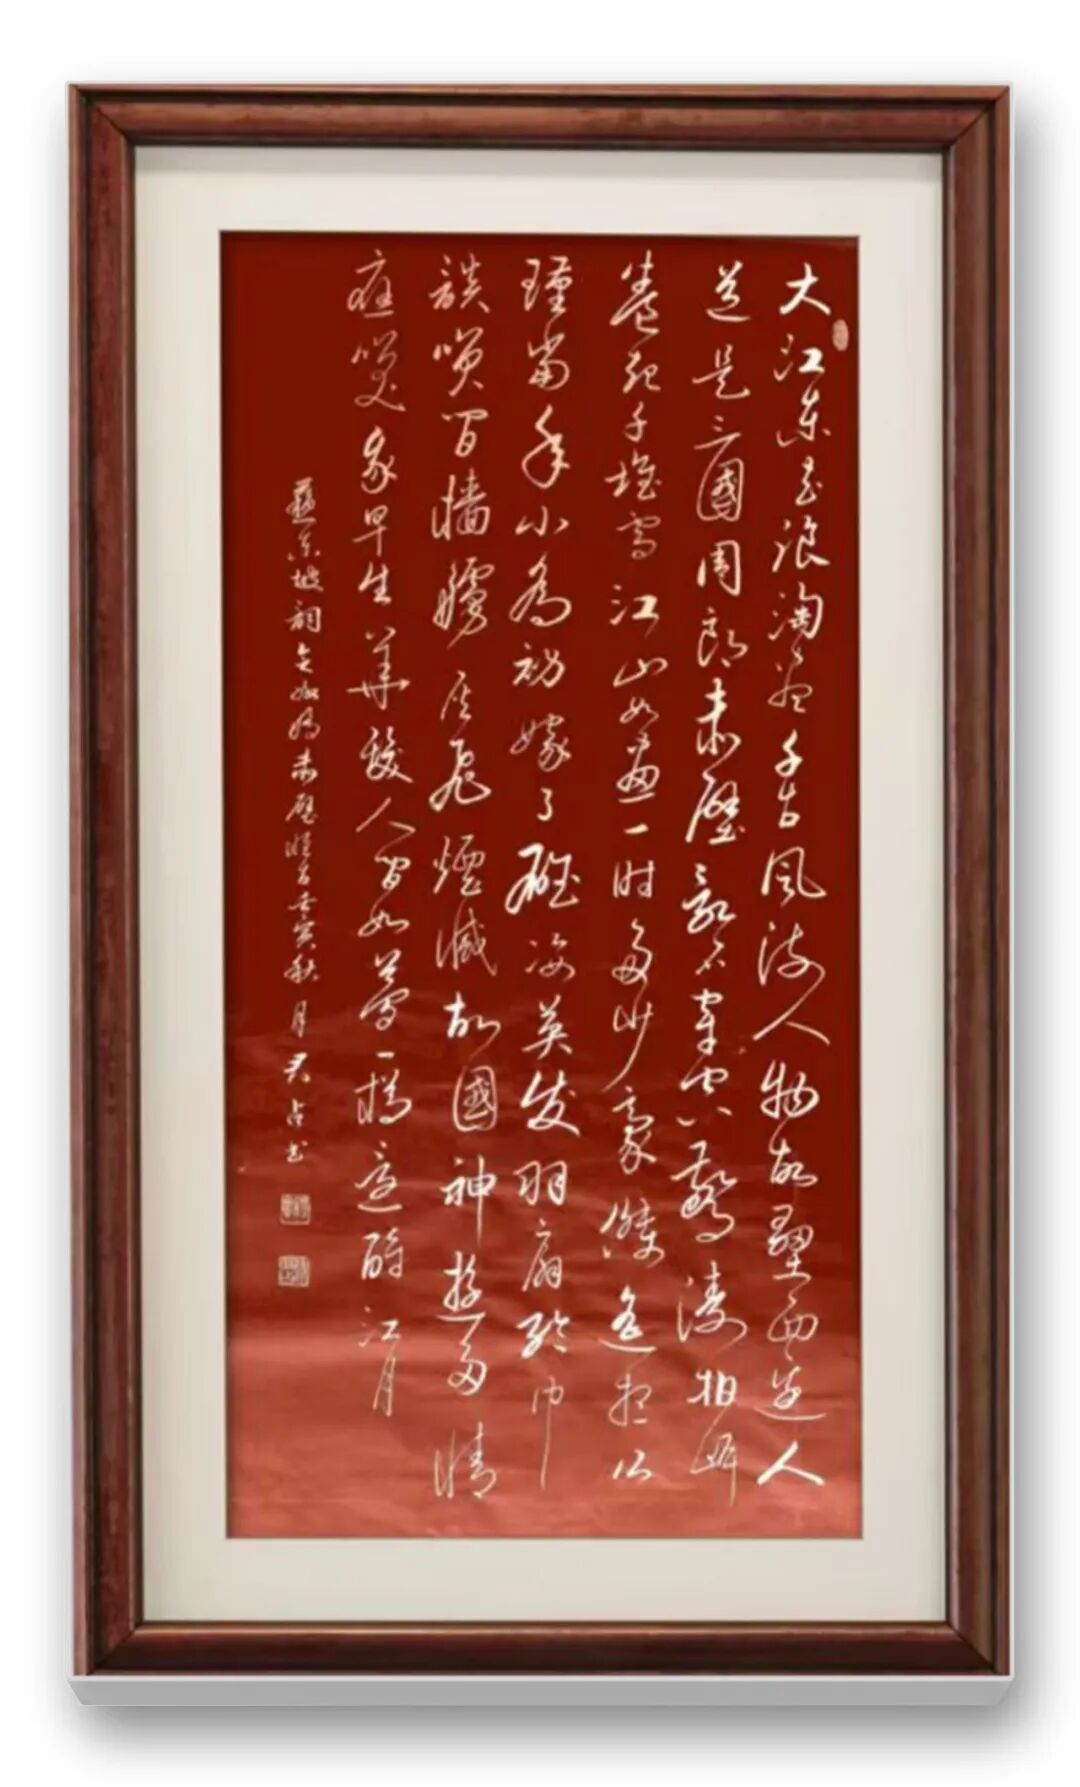 大江东去浪淘尽千古风流人物故壘西边人
道是三國周郎赤壁乱石穿空驚涛拍岸
卷起千堆雪江山如畫一时多少豪傑遥想公
瑾當年小乔初嫁了雄姿英发羽扇纶巾
談笑间檣艣灰飛煙滅故國神遊多情
应笑我早生華髮人间如夢一樽还酹江月
蘇东坡詞念奴娇赤壁懷古壬寅秋月书